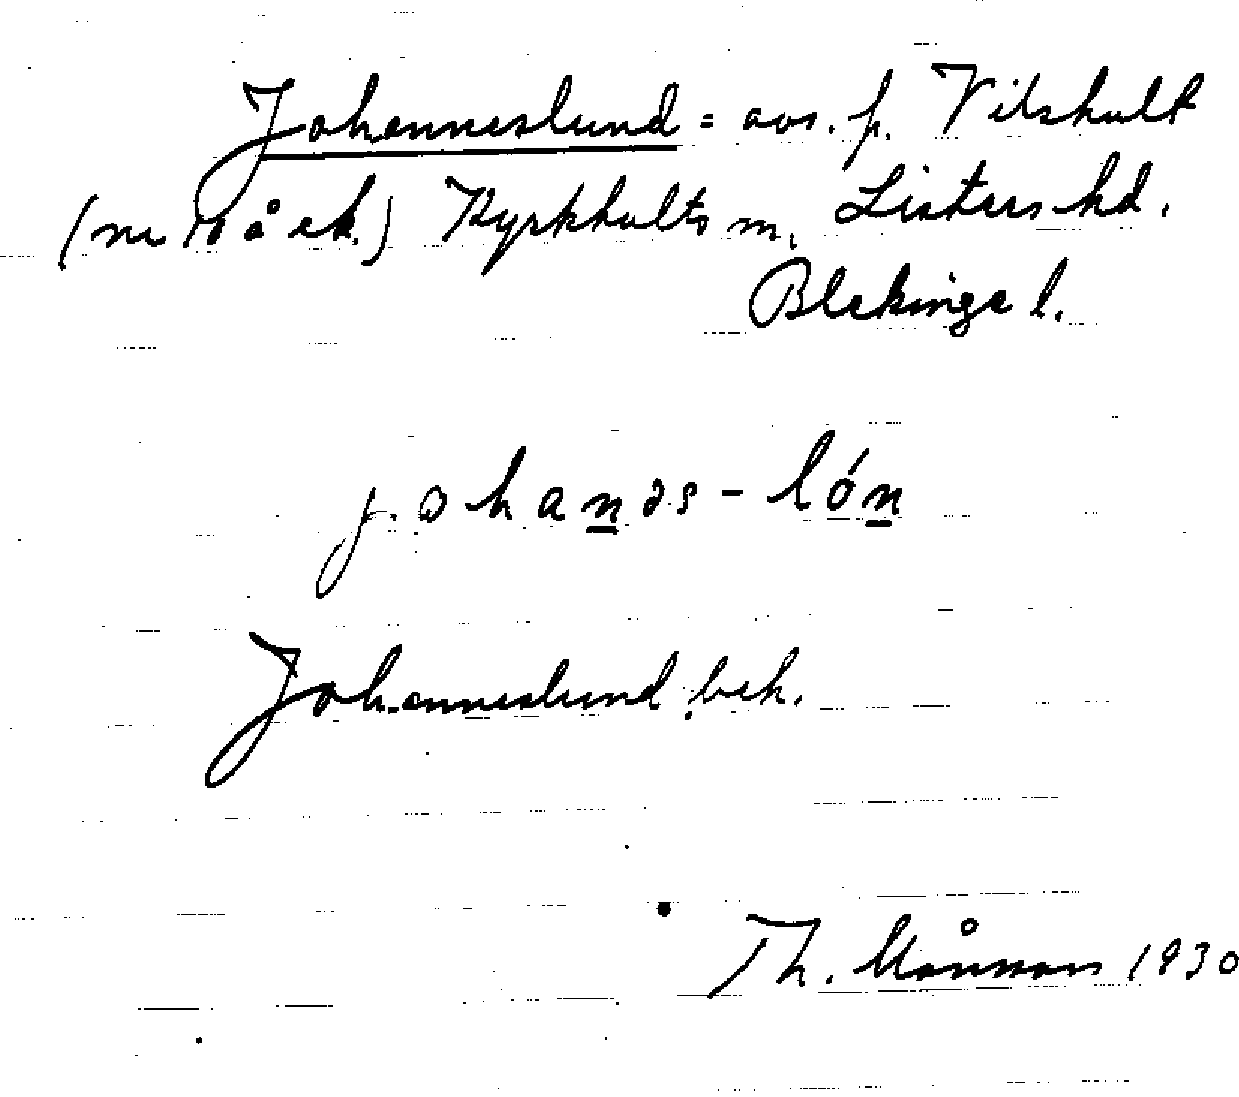 Johanneslund = avs. p. Vilshult
(nr 10 å ek.) Kyrkhults sn. Listers hd.
Blekinge l.
johanəs-lón
Johanneslund bek.
Th. Månsson 1930